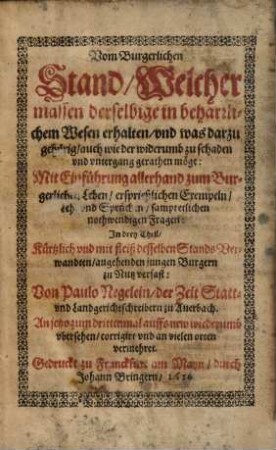 Vom Burgerlichen
Stand/Welcher
massen derselbige in beharꝛli-
chem Wesen erhalten/vnd was darzu
gehörig/auch wie der widerumb zu schaden
vnd vntergang gerathen möge:
Mit Einführung allerhand zum Bur-
gerlichen Leben/ersprießlichen Exempeln/
vnd Sprüchen/sampt etlichen
nothwendigen Fragen:
In drey Theil/
Kürtzlich vnd mit fleiß desselben Stands Ver-
wandten/angehenden jungen Burgern
zu Nutz verfaßt:
Von Paulo Negelein/der Zeit Statt-
vnd Landgerichtschreibern zu Aurbach.
An jetzo zum drittenmal auffs new widerumb
vbersehen/corrigirt vnd an vielen orten
vermehret.
Gedruckt zu Franckfurt am Mayn/durch
Johann Bringern/1616